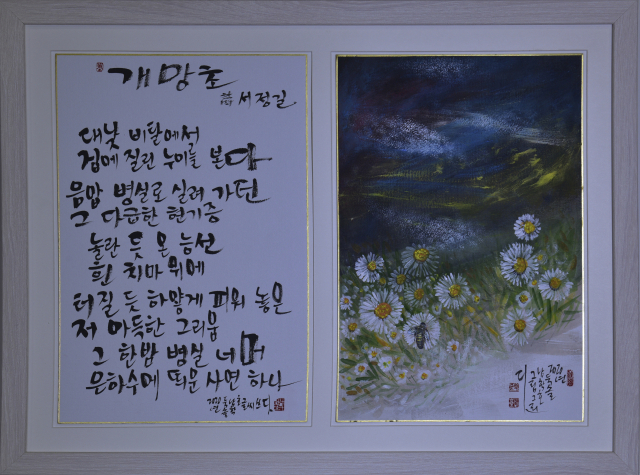 개망초
詩 서정길
대낮 비탈에서
겁에 질린 누이를 본다
음압 병실로 실려 가던
그 다급한 현기증
놀란 듯 온 능선
흰 치마 위에
터질 듯 하얗게 피워 놓은
저 아득한 그리움
그 한밤 병실 너머
은하수에 띄운 사연 하나